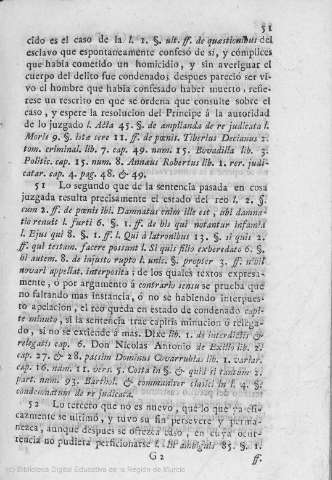 51
cido es el caso de la l. 1. §. ult. ff. de quæstionibus del
esclavo que espontaneamente confesó de sí, y cómplices
que habia cometido un homicidio, y sin averiguar el
cuerpo del delito fue condenado; despues pareció ser vi-
vo el hombre que habia confesado haber muerto, refie-
rese un rescrito en que se ordena que consulte sobre el
caso, y espere la resolucion del Príncipe á la autoridad
de lo juzgado l. Acta 45. §. de amplianda de re judicata l.
Moris 9. §. ista ere 11. ff. de pœnis. Tiberius Decianus 2.
tom. criminal. lib. 7. cap. 49. num. 15. Bovadilla lib. 3.
Politic. cap. 15. num. 8. Annæus Robertus lib. 1. rer. judi-
catar. cap. 4. pag. 48. & 49.
51 Lo segundo que de la sentencia pasada en cosa
juzgada resulta precisamente el estado del reo l. 2. §.
cum 2. ff. de pœnis ibi. Damnatus enim ille est, ubi damna-
tio tenuit l. furti 6. §. 1. ff. de his qui notantur infamia
l. Ejus qui 8. §. 1. ff. l. Qui à latronibus 13. §. si quis 2.
ff. qui testam. facere possunt l. Si quis filio exheredato 6. §.
hi autem. 8. de injusto rupto l. unic. §. propter 3. ff. nihil
novari appellat. interposita; de los quales textos expresa-
mente, ó por argumento á contrario sensu se prueba que
no faltando mas instancia, ó no se habiendo interpues-
to apelacion, el reo queda en estado de condenado capi-
te minuto, si la sentencia trae capitis minucion ó relega-
do, si no se extiende á mas. Dixe lib. 1. de interdictis &
relegatis cap. 6. Don Nicolas Antonio de Exilio lib. 2
cap. 27. & 28. passim Dominus Covarrubias lib. 1. variar.
cap. 16. num. 11. vers. 5. Costa in §. & quid si tantùm 2.
part. num. 93. Barthol. & communiter clasici in l. 4. §.
condemnatum de re judicata.
52 Lo tercero que no es nuevo, que lo que ya efi-
cazmente se ultimó, y tuvo su fin persevere y perma-
nezca, aunque despues se ofrezca caso, en cuya ocur-
rencia no pudiera perficionarse l. In ambiguis 85. §. 1.
G 2 ff.
(c) Biblioteca Digital Educativa de la Región de Murcia